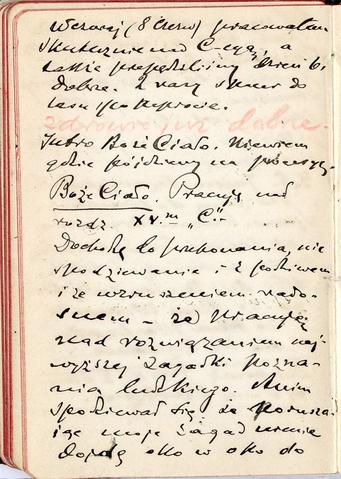 Wczoraj (8 Czerw) pracowałem
skutecznie nad C-cyą, a
także przepędziliśmy dzień b.
dobrze. 2 razy spacer do
lasu po deszczu.
Zdrowie już dobre.
Jutro Boże Ciało. Niewiem
gdzie pójdziemy na
Boże Ciało. Pracuję nad
rozdz. XV.m „C."
Dochodzę do przekonania, nie
spodziewanie i z podziwem
i ze wzruszeniem rado-
snem – że pracuję
nad rozwiązaniem naj-
wyższej zagadki pozna-
nia ludzkiego. Anim
spodziewał się że porusza-
jąc moje zagadnienie
dojdę oko w oko do